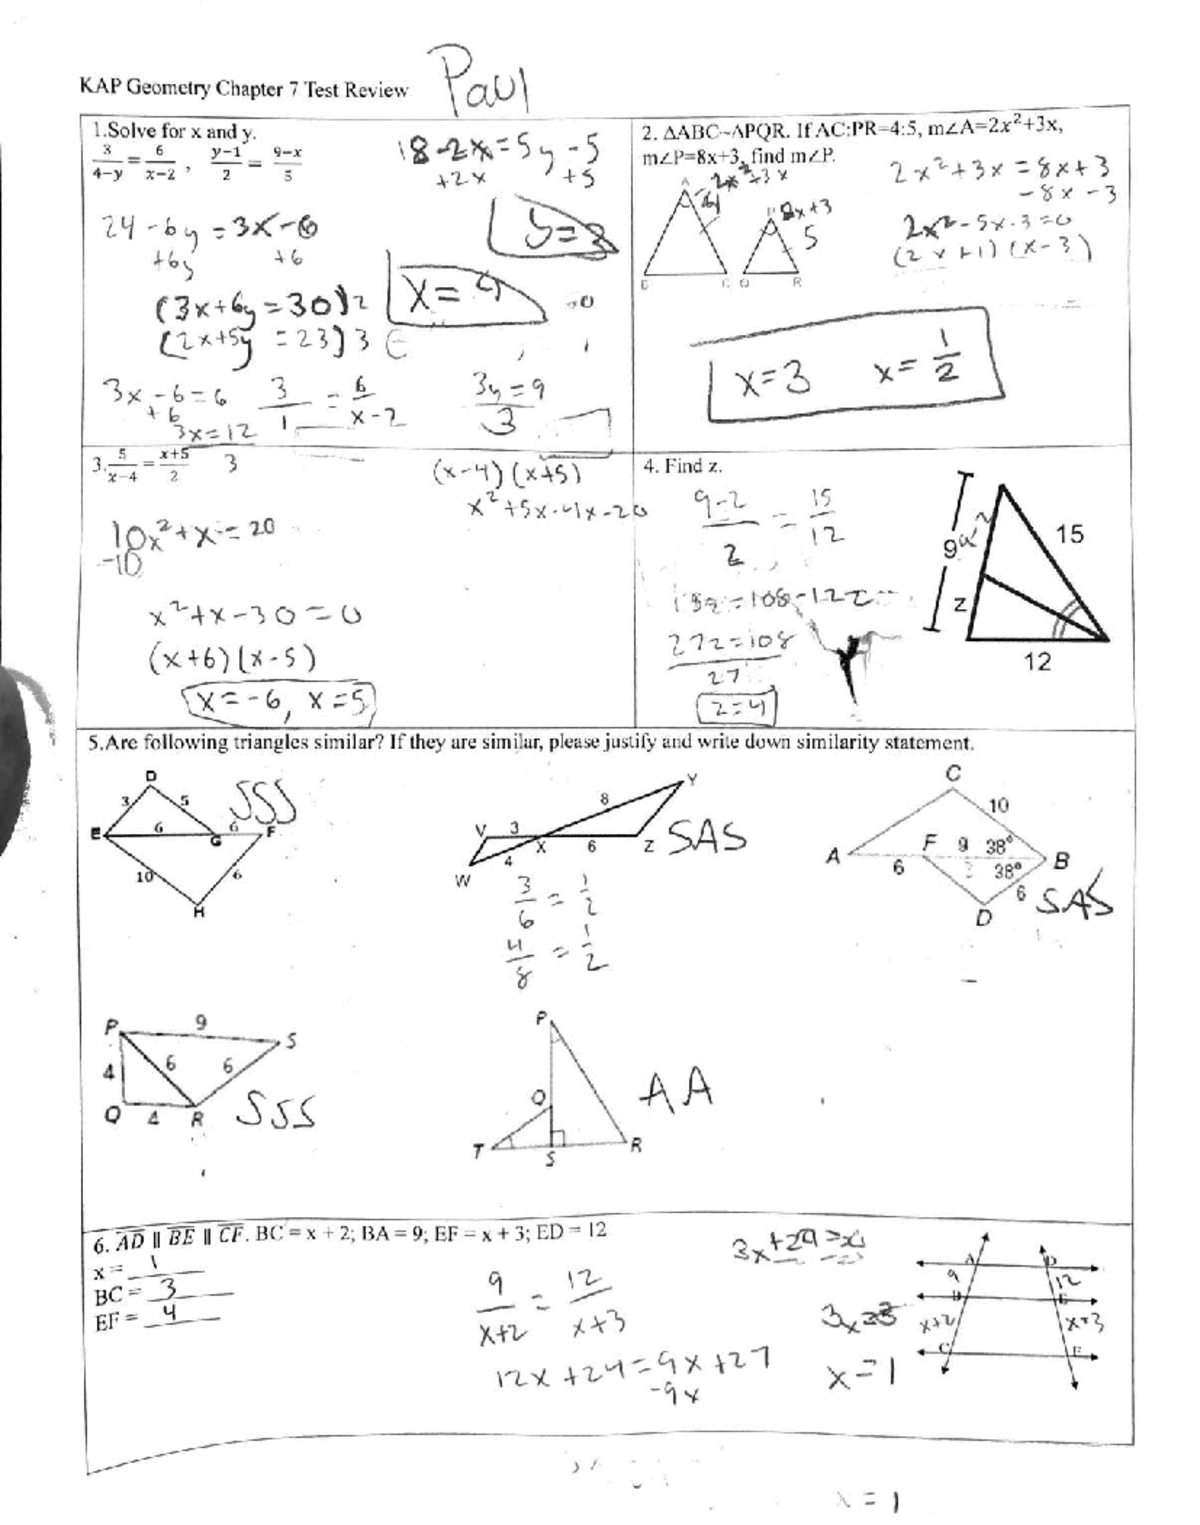 KAP Geometry Chapter 7 Test Review
Paul
1.Solve for x and y.
3/4-y = 6/x-2 , y-1/2 = 9-x/5
18-2x=5y-5
+2x +5
24-6y=3x-6
+6y +6
y=3
(3x+6y=30)2
(2x+5y=23)3
x=4
3x-6=6
+6
3x=12
3
3/1 = 6/x-2
3y=9
3
2. ΔABC~ΔPQR. If AC:PR=4:5, m∠A=2x²+3x,
m∠P=8x+3, find m∠P.
2x²+3x=8x+3
-8x-3
2x²-5x-3=0
(2x+1)(x-3)
A
2x²+3x
4
B
C
8x+3
5
Q
R
x=3 x=1/2
3. 5/x-4 = x+5/2
(x-4)(x+5)
x²+5x-4x-20
10x²+x=20
-10
x²+x-30=0
(x+6)(x-5)
x=-6, x=5
4. Find z.
9-z/z = 15/12
15z=108-12z
27z=108
27
z=4
9
15
z
12
5.Are following triangles similar? If they are similar, please justify and write down similarity statement.
D
3
5
SSS
E
6
G
6
F
10
6
H
Y
8
V
3
X
6
Z
SAS
4
W
3/6 = 1/2
4/8 = 1/2
C
10
A
F
9
38°
B
6
38°
6
D
SAS
P
9
S
4
6
6
Q
4
R
SSS
P
Q
T
S
R
AA
6. AD || BE || CF. BC = x + 2; BA = 9; EF = x + 3; ED = 12
x = 1
BC = 3
EF = 4
9/x+2 = 12/x+3
12x+24=9x+27
-9x
3x=3
x=1
A
D
9
12
B
E
x+2
x+3
C
F
x=1